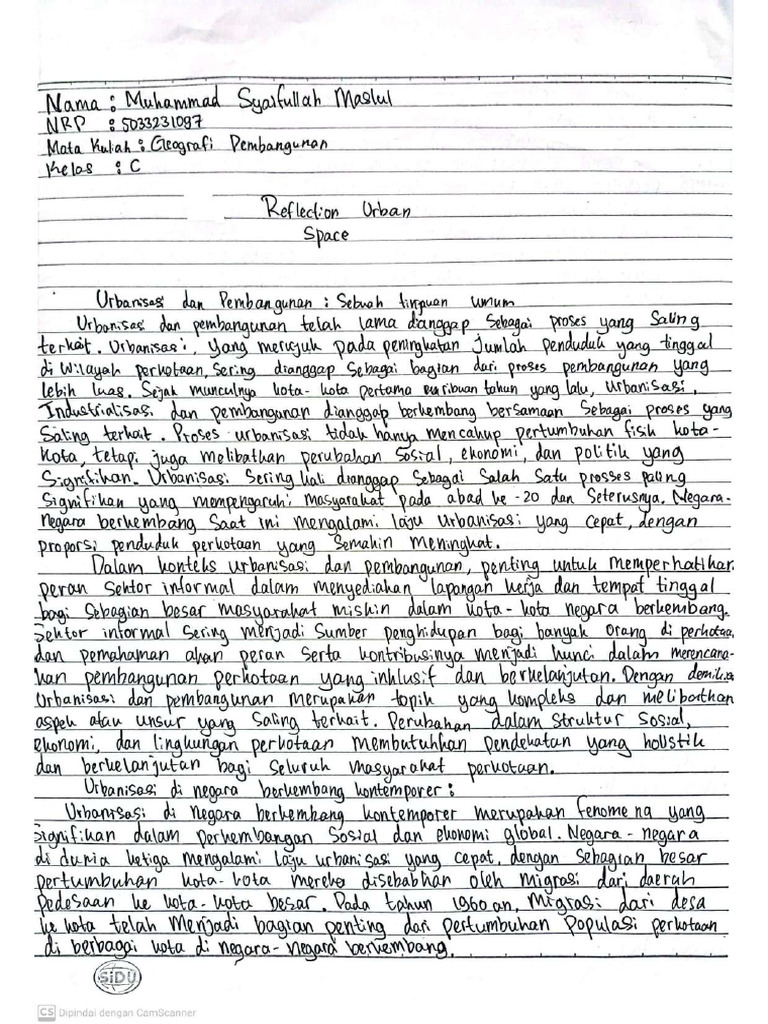 Nama : Muhammad Syaifullah Maslul
NRP : 5033231097
Mata Kuliah : Geografi Pembangunan
Kelas : C
Reflection Urban
Space
Urbanisasi dan Pembangunan : Sebuah tinjauan umum
Urbanisasi dan pembangunan telah lama dianggap Sebagai proses yang Saling
terkait. Urbanisasi, yang merujuk pada peningkatan Jumlah penduduk yang tinggal
di Wilayah perkotaan, Sering dianggap Sebagai bagian dari proses pembangunan yang
lebih luas. Sejak munculnya kota-kota pertama ribuan tahun yang lalu, Urbanisasi,
Industrialisasi dan pembangunan dianggap berkembang bersamaan Sebagai proses yang
Saling terkait. Proses urbanisasi tidak hanya mencakup pertumbuhan fisik kota-
kota, tetapi juga melibatkan perubahan Sosial, ekonomi, dan politik yang
Signifikan. Urbanisasi Sering kali dianggap Sebagai Salah Satu prosses paling
Signifikan yang mempengaruhi masyarakat pada abad ke-20 dan Seterusnya. Negara-
negara berkembang Saat ini mengalami laju urbanisasi yang cepat, dengan
proporsi penduduk perkotaan yang Semakin Meningkat.
Dalam konteks urbanisasi dan pembangunan, penting untuk memperhatikan
peran Sektor informal dalam menyediakan lapangan kerja dan tempat tinggal
bagi Sebagian besar masyarakat miskin dalam kota-kota negara berkembang.
Sektor informal Sering menjadi Sumber penghidupan bagi banyak orang di perkotaa,
dan pemahaman akan peran Serta kontribusinya menjadi kunci dalam merencana-
kan pembangunan perkotaan yang inklusif dan berkelanjutan. Dengan demikia
Urbanisasi dan pembangunan merupakan topik yang kompleks dan melibatkan
aspek atau unsur yang Saling terkait. Perubahan dalam Struktur Sosial,
ekonomi, dan lingkungan perkotaan Membutuhkan Pendekatan yang holistik
dan berkelanjutan bagi Seluruh Masyarakat perkotaan.
Urbanisasi di negara berkembang kontemporer :
Urbanisasi di Negara berkembang kontemporer merupakan fenomena yang
Signifikan dalam Perkembangan Sosial dan ekonomi global. Negara-negara
di dunia ketiga Mengalami laju urbanisasi yang cepat, dengan Sebagian besar
pertumbuhan kota-kota mereka disebabkan oleh Migrasi dari daerah
Pedesaan ke kota-kota besar. Pada tahun 1960 an, Migrasi dari desa
ke kota telah Menjadi bagian penting dari pertumbuhan Populasi perkotaan
di berbagai kota di negara-negara berkembang.
SiDU
CS Dipindai dengan CamScanner